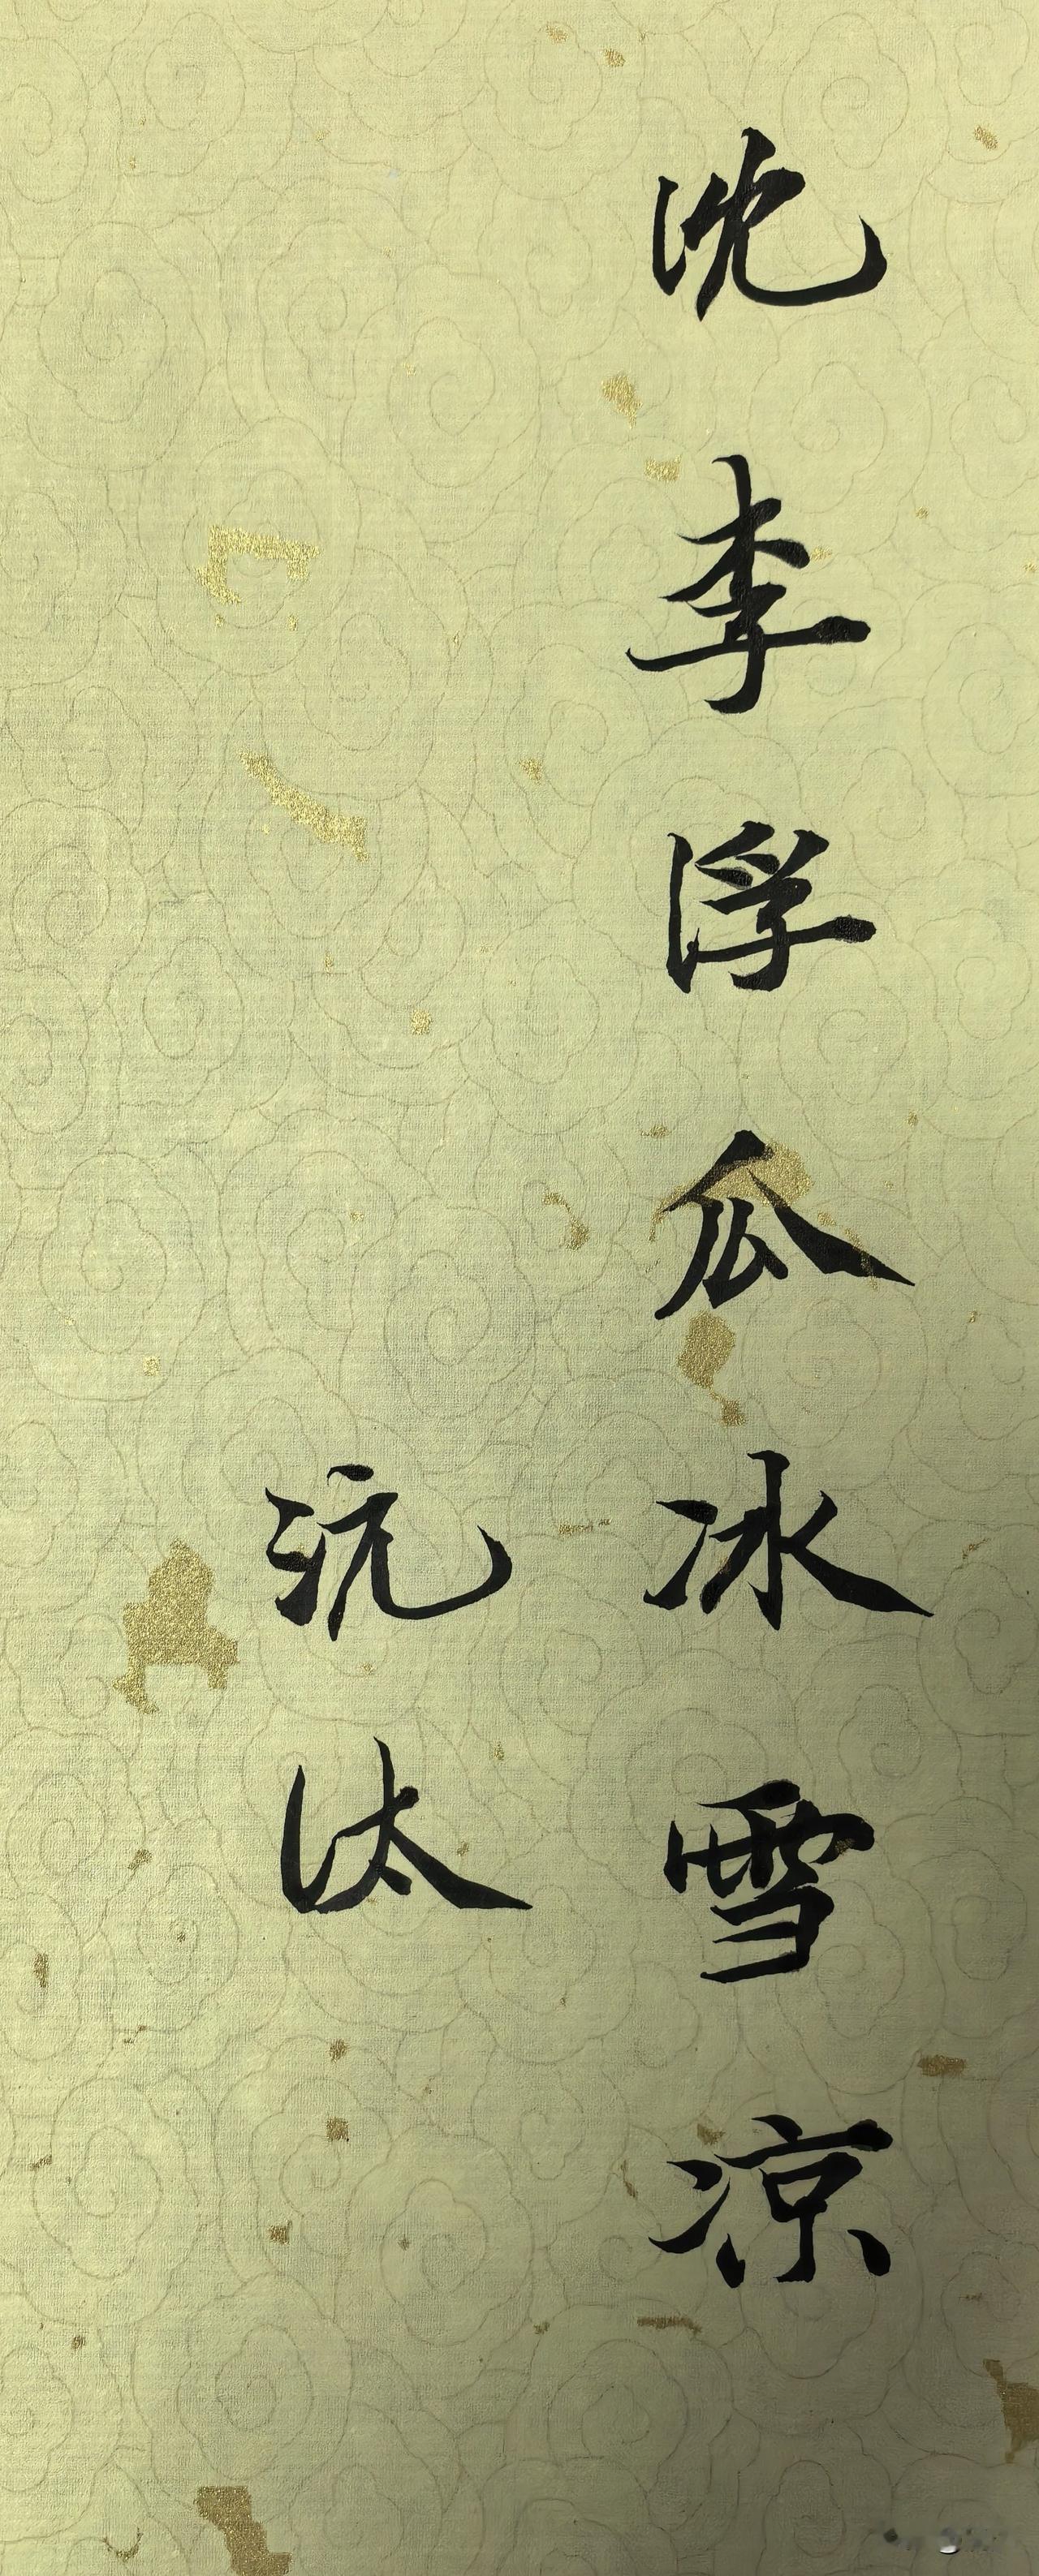 沈李浮瓜冰雪凉
沆汰